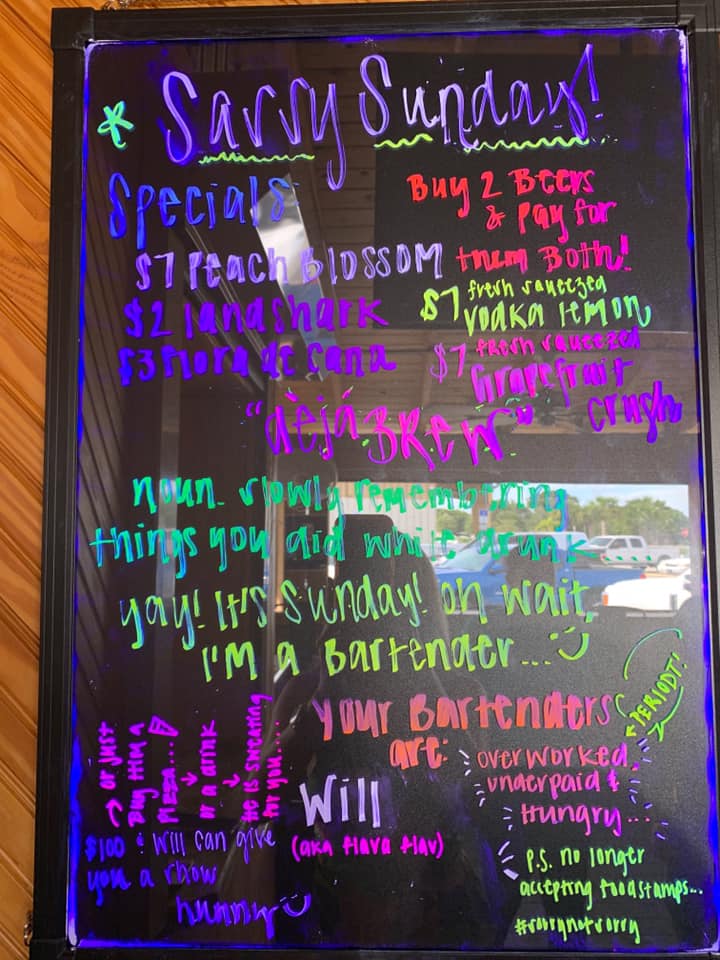 Savvy Sunday!
Specials:
$7 Peach Blossom
$2 landshark
$3 Flora de Cana
Buy 2 Beers
& Pay for
them Both!
$7 fresh squeezed
vodka lemon
$7 fresh squeezed
Grapefruit
crush
"dèjá BREW"
noun. slowly remembering
things you did while drunk.....
yay! It's Sunday! oh wait,
I'm a Bartender...
Your Bartenders
are:
PERIODT!
overworked,
underpaid &
Hungry...
Will
(aka flava flav)
$100 & Will can give
you a show
hunny
→ or just
Buy him a
Pizza....
or a drink
He is sweating
for you....
P.S. no longer
accepting foodstamps...
#sorrynotsorry